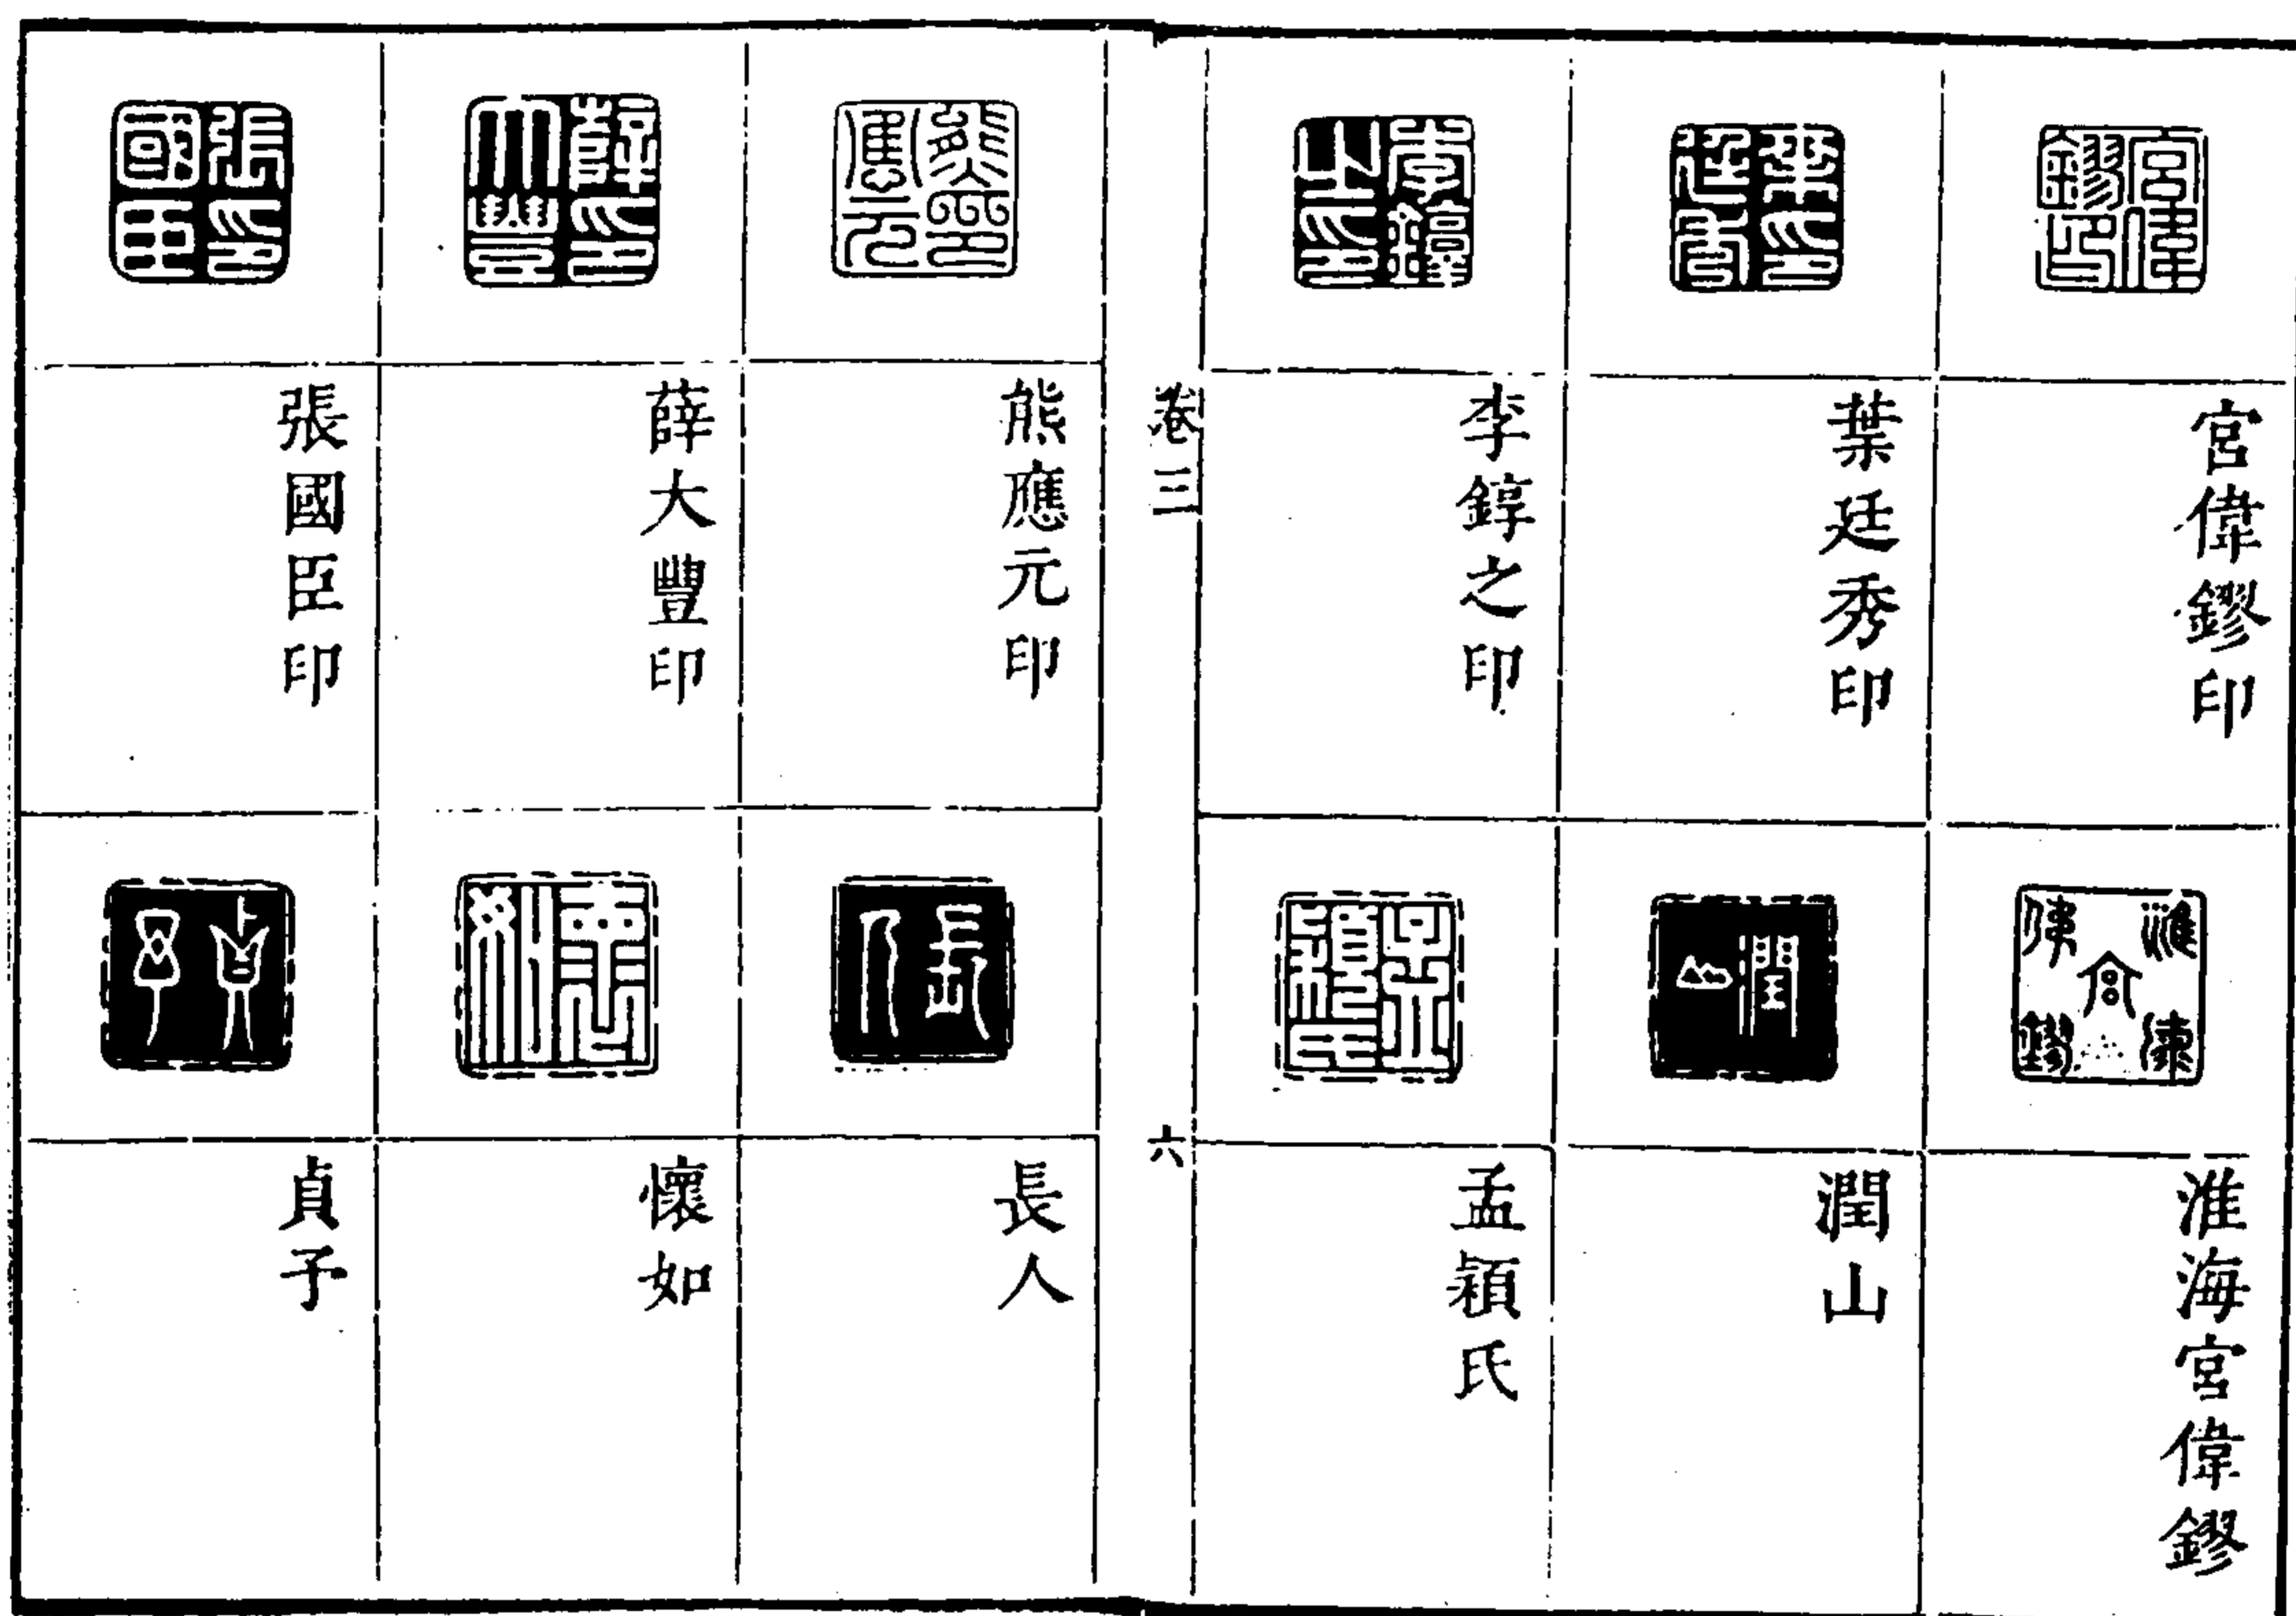 宮偉鏐印
淮海宮偉鏐
葉廷秀印
潤山
李錞之印
孟穎氏
卷三
六
熊應元印
長人
薛大豐印
懷如
張國臣印
貞予